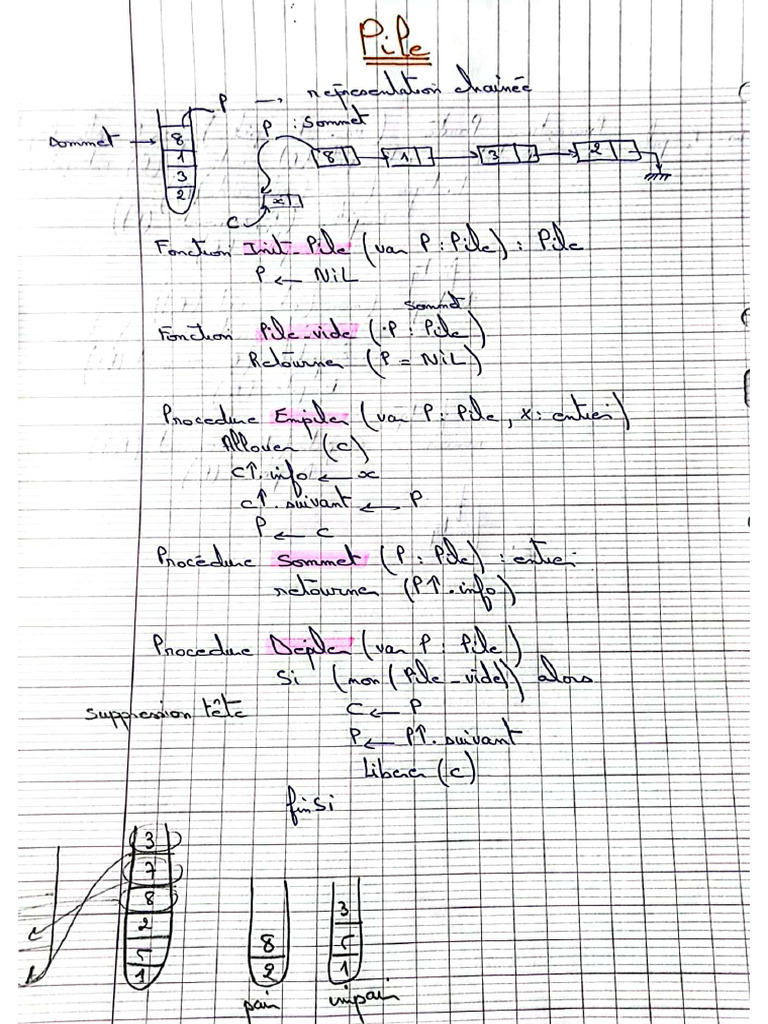 Pile
P → représentation chainée
P : Sommet
Sommet → 8
1
3
2
8 1 3 2
x
C
Fonction Init_Pile (var P : Pile) : Pile
P ← NiL
sommet
Fonction Pile-vide (P : Pile)
Retourner (P = NiL)
Procedure Empiler (var P : Pile, x : entier)
Allouer (c)
c↑. info ← x
c↑. suivant ← P
P ← c
Procédure Sommet (P : Pile) : entier
retourner (P↑. info)
Procedure Depiler (var P : Pile)
Si (non (Pile_vide)) alors
suppression tête
C ← P
P ← P↑. suivant
Liberer (c)
finsi
3
7
8
2
5
1
8
2
pair
3
5
1
impair